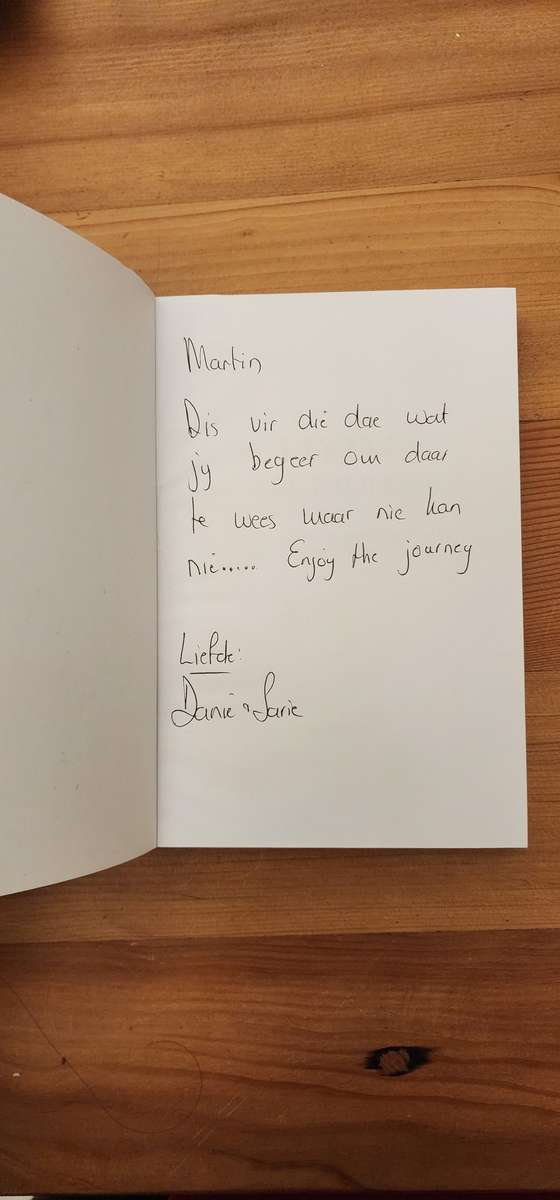 Martin
Dis vir die dae wat
jy begeer om daar
te wees maar nie kan
nie..... Enjoy the journey
Liefde:
Danie & Sarie